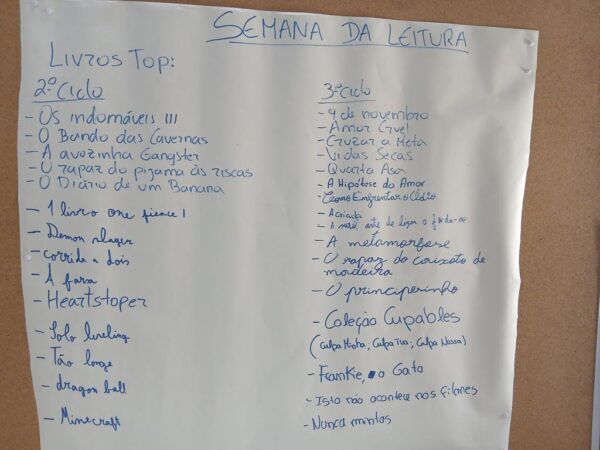 SEMANA DA LEITURA
LIVROS TOP:
2.º CICLO
- Os indomáveis III
- O Bando das Cavernas
- A avozinha Gangster
- O rapaz do pijama às riscas
- O Diário de um Banana
- 1 livro one pience 1
- Demon slayer
- corrida a dois
- A farsa
- Heartstoper
- Solo leveling
- Tão longe
- dragon ball
- Minecraft
3.º CICLO
- 9 de novembro
- Amor Cruel
- Cruzar a Meta
- Vidas Secas
- Quarta Asa
- A Hipótese do Amor
- Como Enfrentar o Ódio
- A criada
- A arte de ligar o
- A metamorfose
- O rapaz do caixote de
madeira
- O principesinho
- Coleção Cupables
(Culpa Minha, Culpa Tua, Culpa Nossa)
- Frankie, o Gato
- Isto não acontece nos filmes
- Nunca mintas